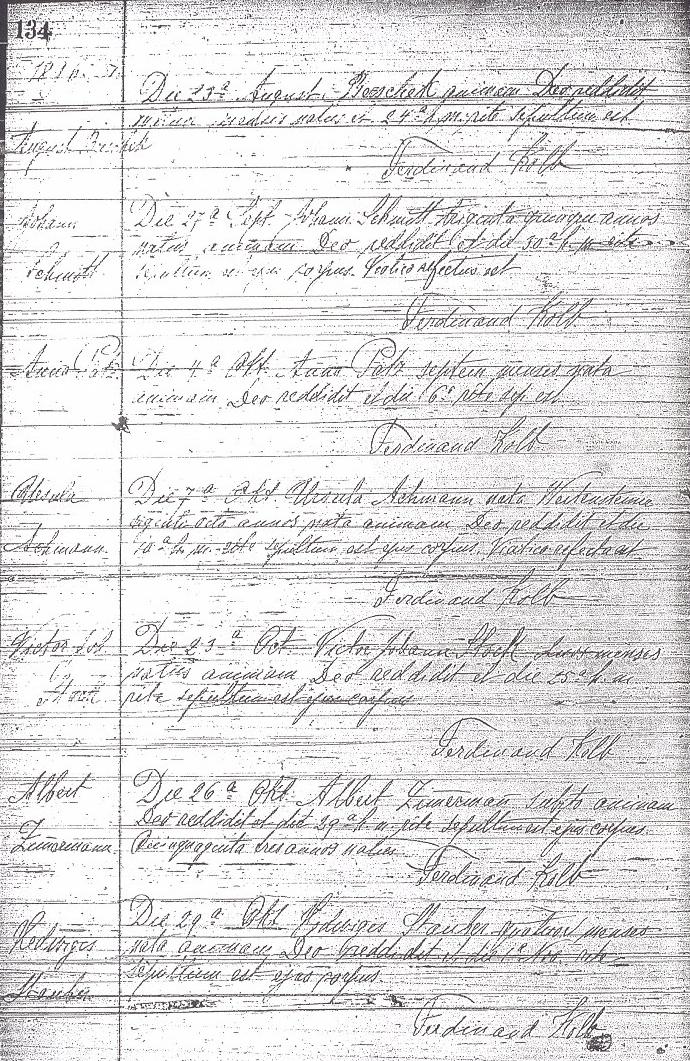 134
Die 23ª August. animam Deo reddidit
mensis natus et 24ª h. m. rite sepultum est
August
Ferdinand Kolb
Johann
Schmitt
Die 27ª Sept. Johann Schmitt triginta quinque annos
natus animam Deo reddidit et die 30ª h. m. rite
sepultum est ejus corpus. Viatico refectus est
Ferdinand Kolb
Anna Patz
Die 4ª Okt. Anna Patz septem menses nata
animam Deo reddidit et die 6ª rite sep. est
Ferdinand Kolb
Ursula
Achmann.
Die 7ª Okt. Ursula Achmann nata
viginti octo annos nata animam Deo reddidit et die
10ª h. m. rite sepultum est ejus corpus. Viatico refecta est
Ferdinand Kolb
Victor Joh.
Die 23ª Oct. Victor Johann duos menses
natus animam Deo reddidit et die 25ª h. m
rite sepultum est ejus corpus
Ferdinand Kolb
Albert
Zimmermann.
Die 26ª Okt. Albert Zimerman subito animam
Deo reddidit et die 29ª h. m. rite sepultum est ejus corpus.
Quinquaginta tres annos natus
Ferdinand Kolb
Hedwiges
Stauber
Die 29ª Okt. Hedwiges Stauber quatuor menses
nata animam Deo reddidit et die 1ª Nov. rite
sepultum est ejus corpus.
Ferdinand Kolb